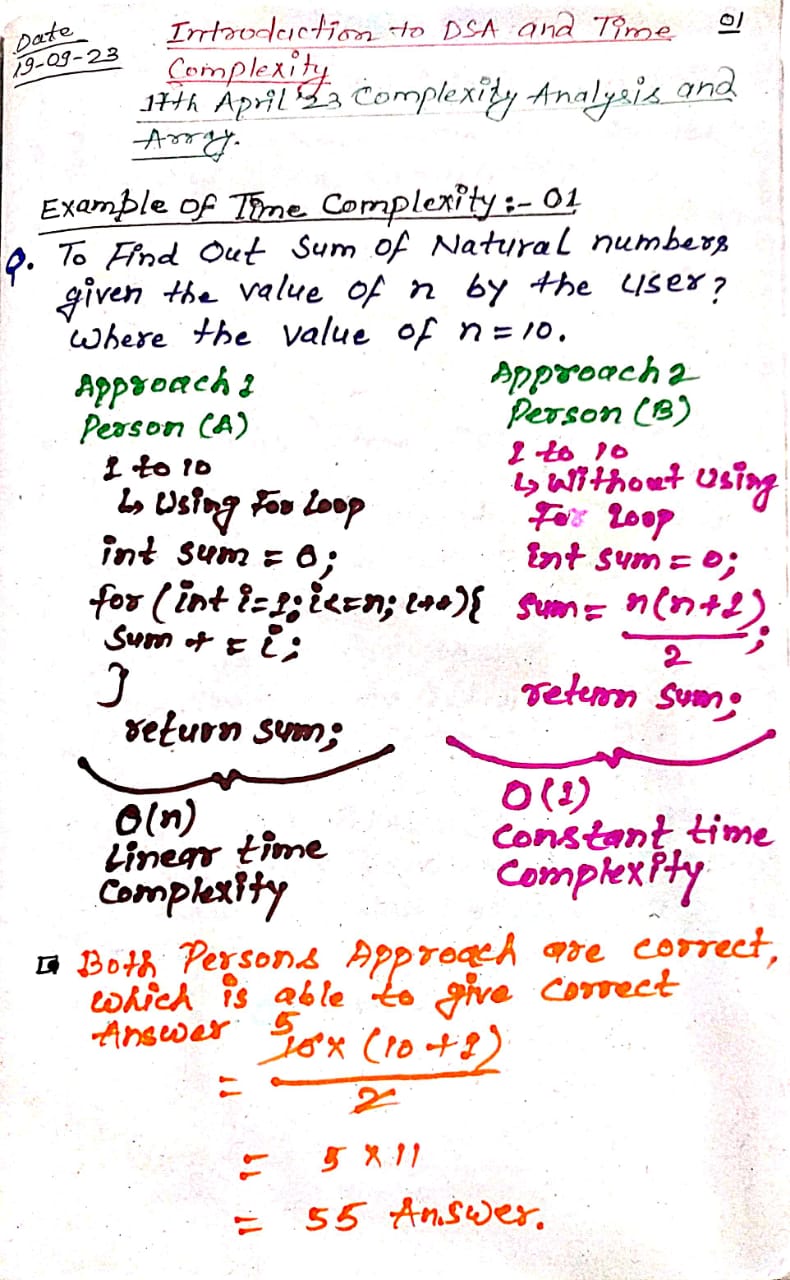 Date
19-09-23
Introduction to DSA and Time
Complexity
01
17th April '23 Complexity Analysis and
Array.
Example of Time Complexity :- 01
Q. To Find Out Sum of Natural numbers
given the value of n by the user?
Where the value of n = 10.
Approach 1
Person (A)
1 to 10
↳ Using For Loop
int sum = 0;
for (int i=1; i<=n; i++){
Sum += i;
}
return sum;
O(n)
Linear time
Complexity
Approach 2
Person (B)
1 to 10
↳ Without Using
For Loop
int sum = 0;
sum = n(n+1)
2 ;
return sum;
O(1)
Constant time
Complexity
Both Persons Approach are correct,
which is able to give correct
Answer
5
= 10 x (10+1)
2
= 5 x 11
= 55 Answer.